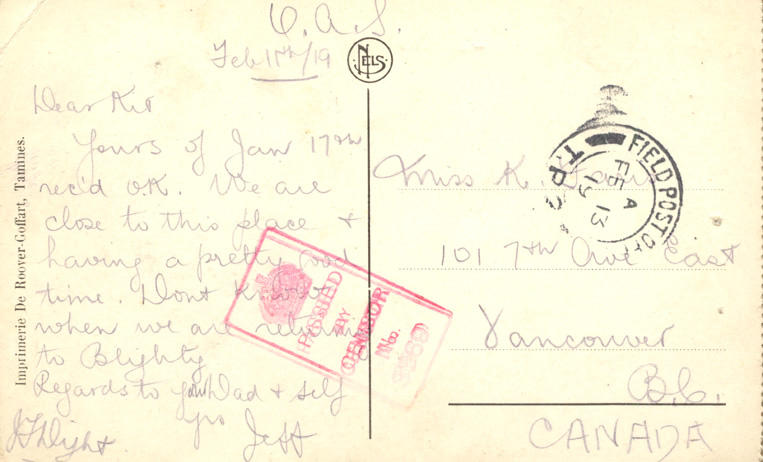 O.A.S.
Feb 11th/19
NELS
Dear Kit
Yours of Jan 17th
rec'd O.K. We are
close to this place &
having a pretty good
time. Dont know
when we are returning
to Blighty
Regards to your Dad & self
yrs Jeff
Imprimerie De Roover-Goffart, Tamines.
PASSED
BY
CENSOR
No.
FIELD POST OFF
T.P.
A
FE 13
19
Miss K.
101 7th Ave East
Vancouver
B.C.
CANADA